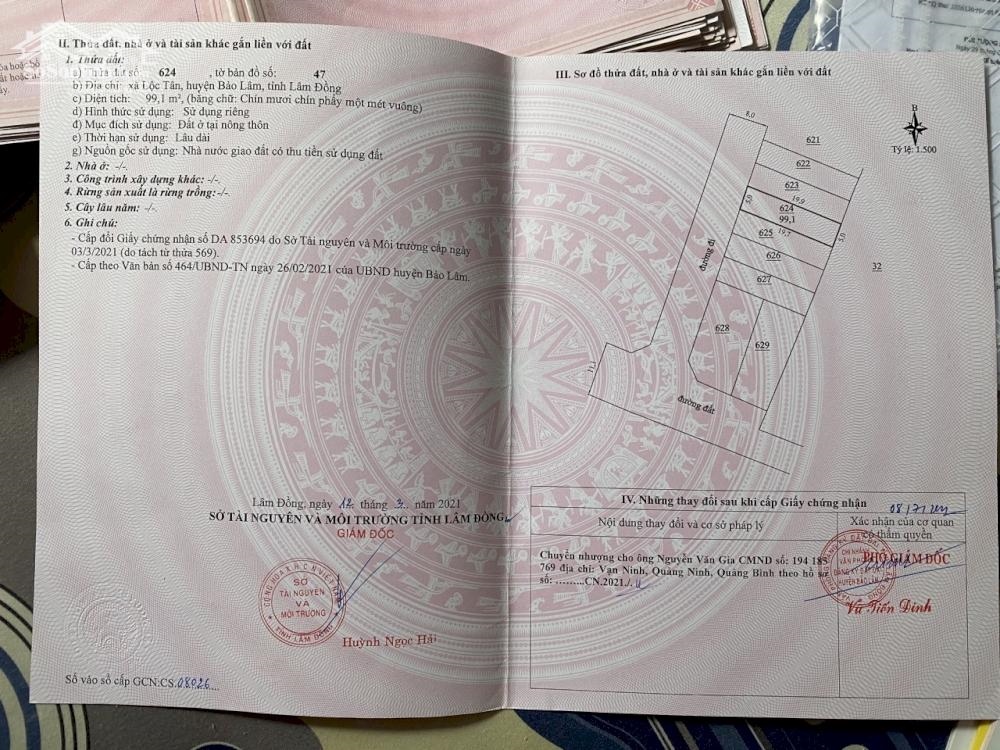 II. Thửa đất, nhà ở và tài sản khác gắn liền với đất
1. Thửa đất:
a) Thửa đất số: 624 , tờ bản đồ số: 47
b) Địa chỉ: xã Lộc Tân, huyện Bảo Lâm, tỉnh Lâm Đồng
c) Diện tích: 99,1 m², (bằng chữ: Chín mươi chín phẩy một mét vuông)
d) Hình thức sử dụng: Sử dụng riêng
đ) Mục đích sử dụng: Đất ở tại nông thôn
e) Thời hạn sử dụng: Lâu dài
g) Nguồn gốc sử dụng: Nhà nước giao đất có thu tiền sử dụng đất
2. Nhà ở: -/-
3. Công trình xây dựng khác: -/-.
4. Rừng sản xuất là rừng trồng: -/-
5. Cây lâu năm: -/-
6. Ghi chú:
- Cấp đổi Giấy chứng nhận số DA 853694 do Sở Tài nguyên và Môi trường cấp ngày
03/3/2021 (do tách từ thửa 569).
- Cấp theo Văn bản số 464/UBND-TN ngày 26/02/2021 của UBND huyện Bảo Lâm.
Lâm Đồng, ngày 12 tháng 3 năm 2021
SỞ TÀI NGUYÊN VÀ MÔI TRƯỜNG TỈNH LÂM ĐỒNG
GIÁM ĐỐC
CỘNG HÒA X.H.C.N VIỆT NAM
SỞ
TÀI NGUYÊN
VÀ
MÔI TRƯỜNG
TỈNH LÂM ĐỒNG
Huỳnh Ngọc Hải
Số vào sổ cấp GCN:CS.08026
III. Sơ đồ thửa đất, nhà ở và tài sản khác gắn liền với đất
B
Tỷ lệ: 1.500
8,0
621
622
623
19,9
5,0
624
99,1
625
19,7
5,0
626
627
32
đường đi
628
629
11,1
đường đất
IV. Những thay đổi sau khi cấp Giấy chứng nhận
Nội dung thay đổi và cơ sở pháp lý
Xác nhận của cơ quan
có thẩm quyền
Chuyển nhượng cho ông Nguyễn Văn Gia CMND số: 194 185
769 địa chỉ: Vạn Ninh, Quảng Ninh, Quảng Bình theo hồ sơ
số: .........CN.2021./.
PHÓ GIÁM ĐỐC
CHI NHÁNH
VĂN PHÒNG
ĐĂNG KÝ ĐẤT ĐAI
HUYỆN BẢO LÂM
Vũ Tiến Định